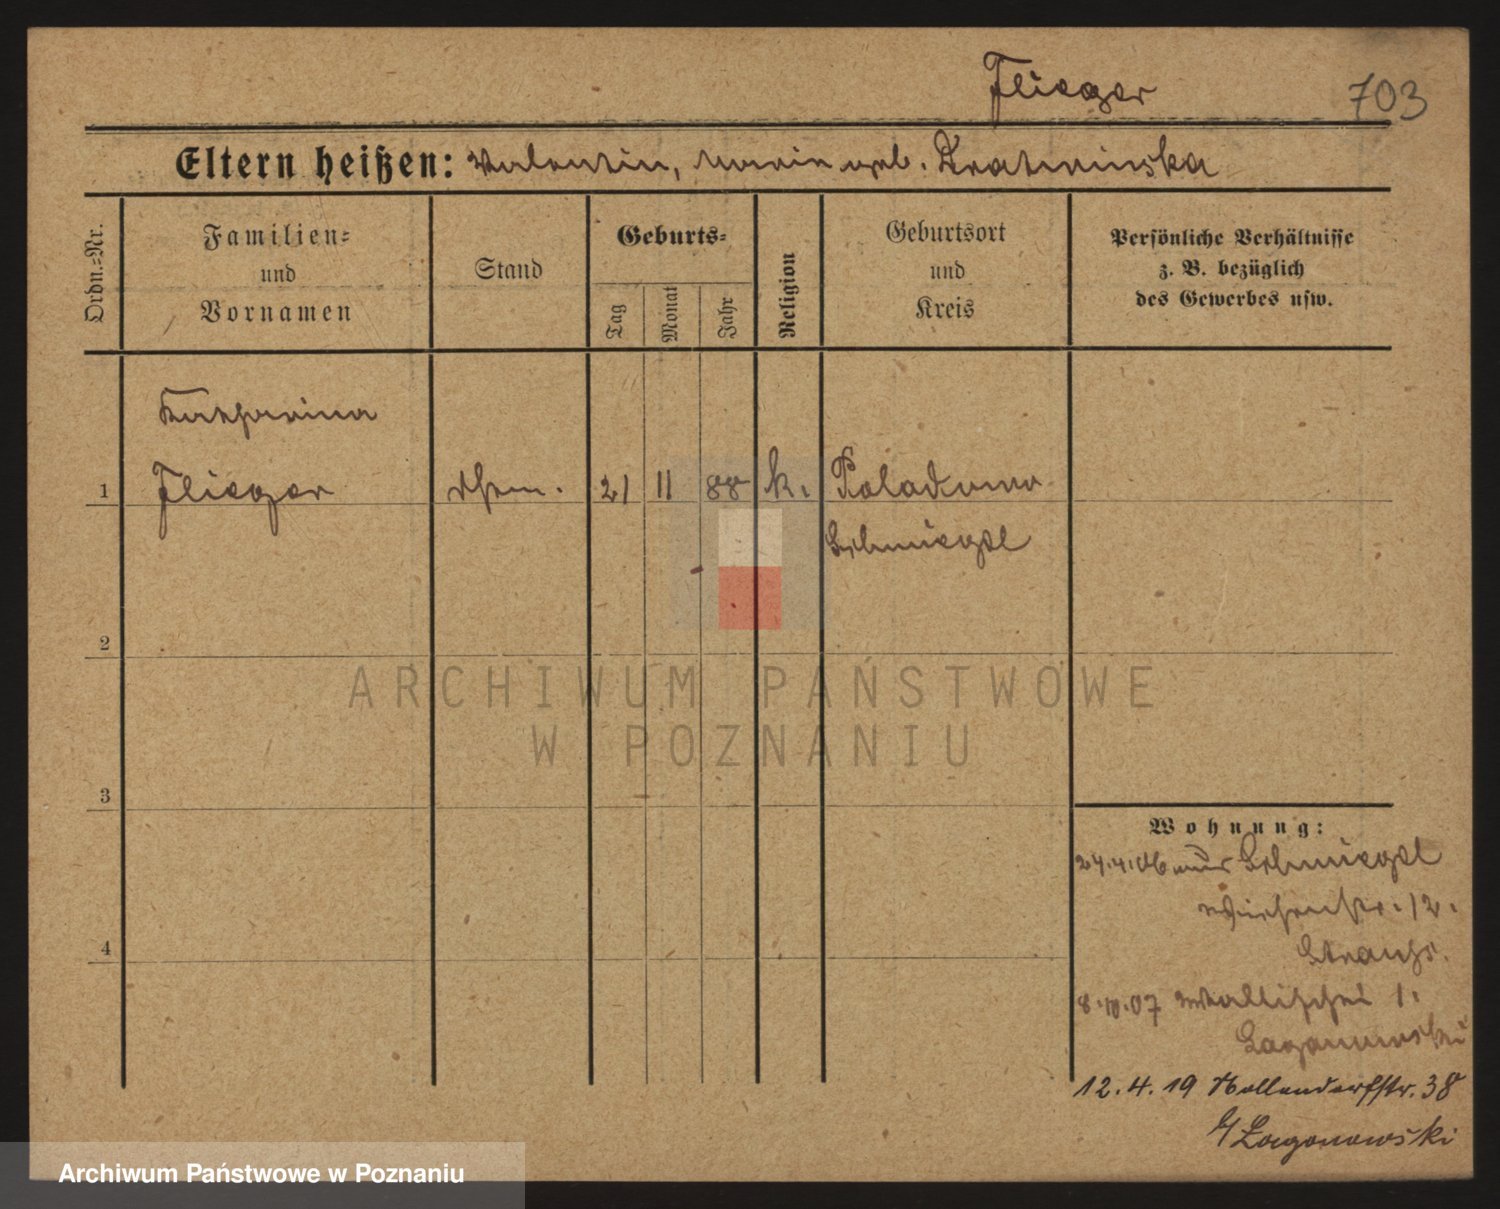 Flieger
703
Eltern heißen: Valentin, Marie geb. Kratminska
Ordn.=Nr.
Familien=
und
Vornamen
Stand
Geburts=
Tag
Monat
Jahr
Religion
Geburtsort
und
Kreis
Persönliche Verhältnisse
z. B. bezüglich
des Gewerbes usw.
Katharina
1
Flieger
21
11
88
k.
Schmiegel
2
3
4
Wohnung:
24.4.06 aus Schmiegel
12.
8.10.07 Wallischei 1.
Lagonowski
12.4.19 Nollendorfstr. 38
b/Lagonowski
ARCHIWUM PAŃSTWOWE
W POZNANIU
Archiwum Państwowe w Poznaniu